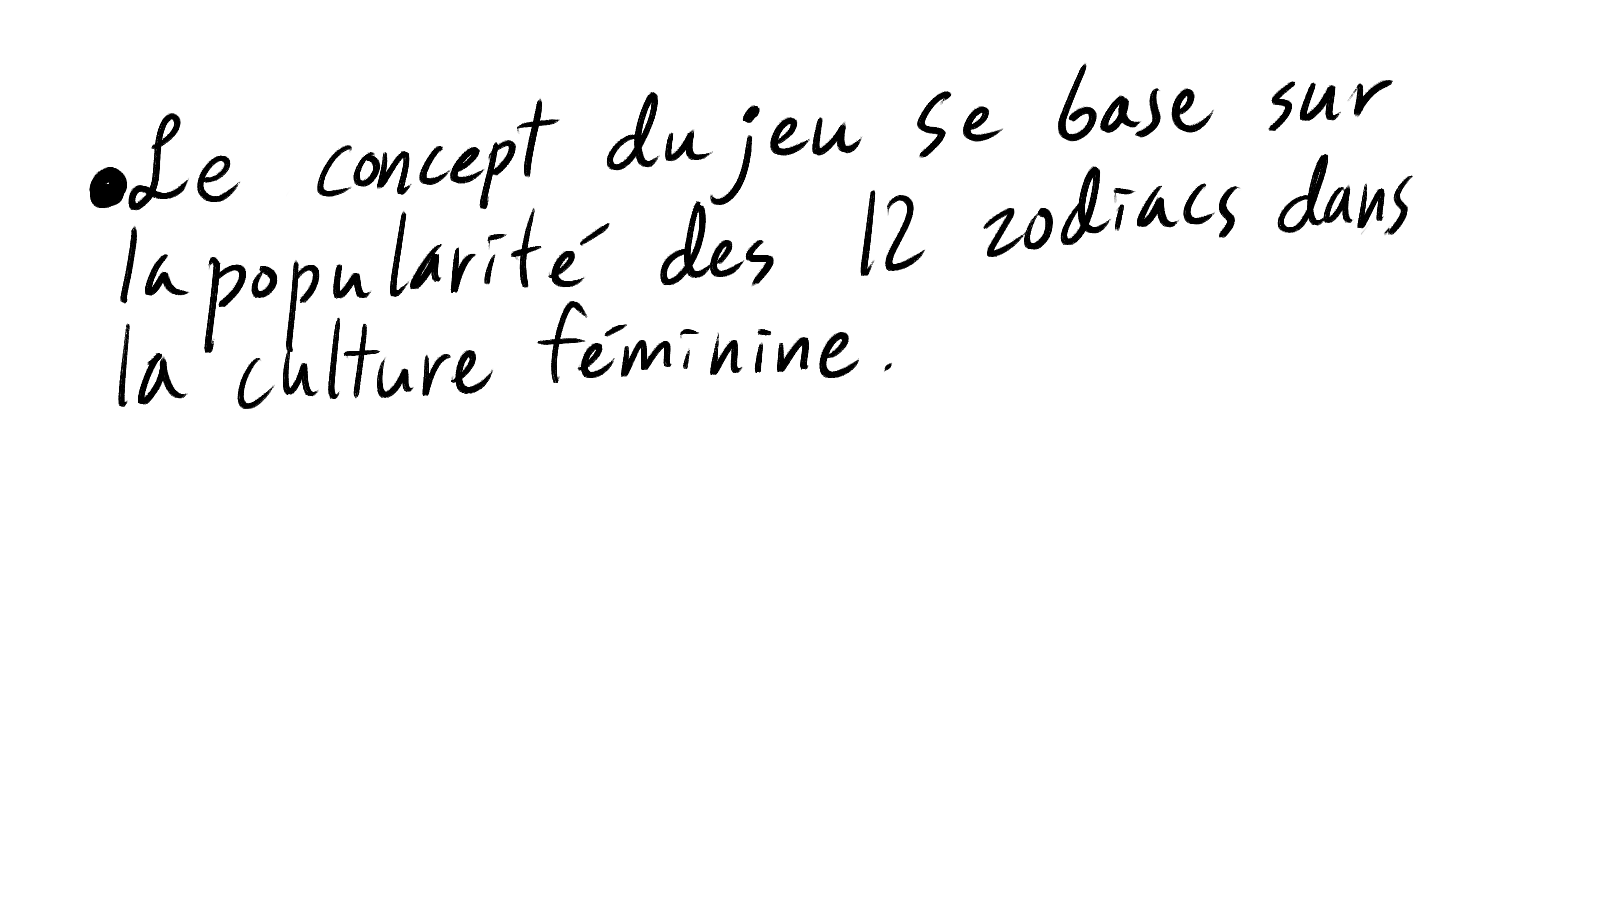 •Le concept du jeu se base sur
la popularité des 12 zodiacs dans
la culture féminine.